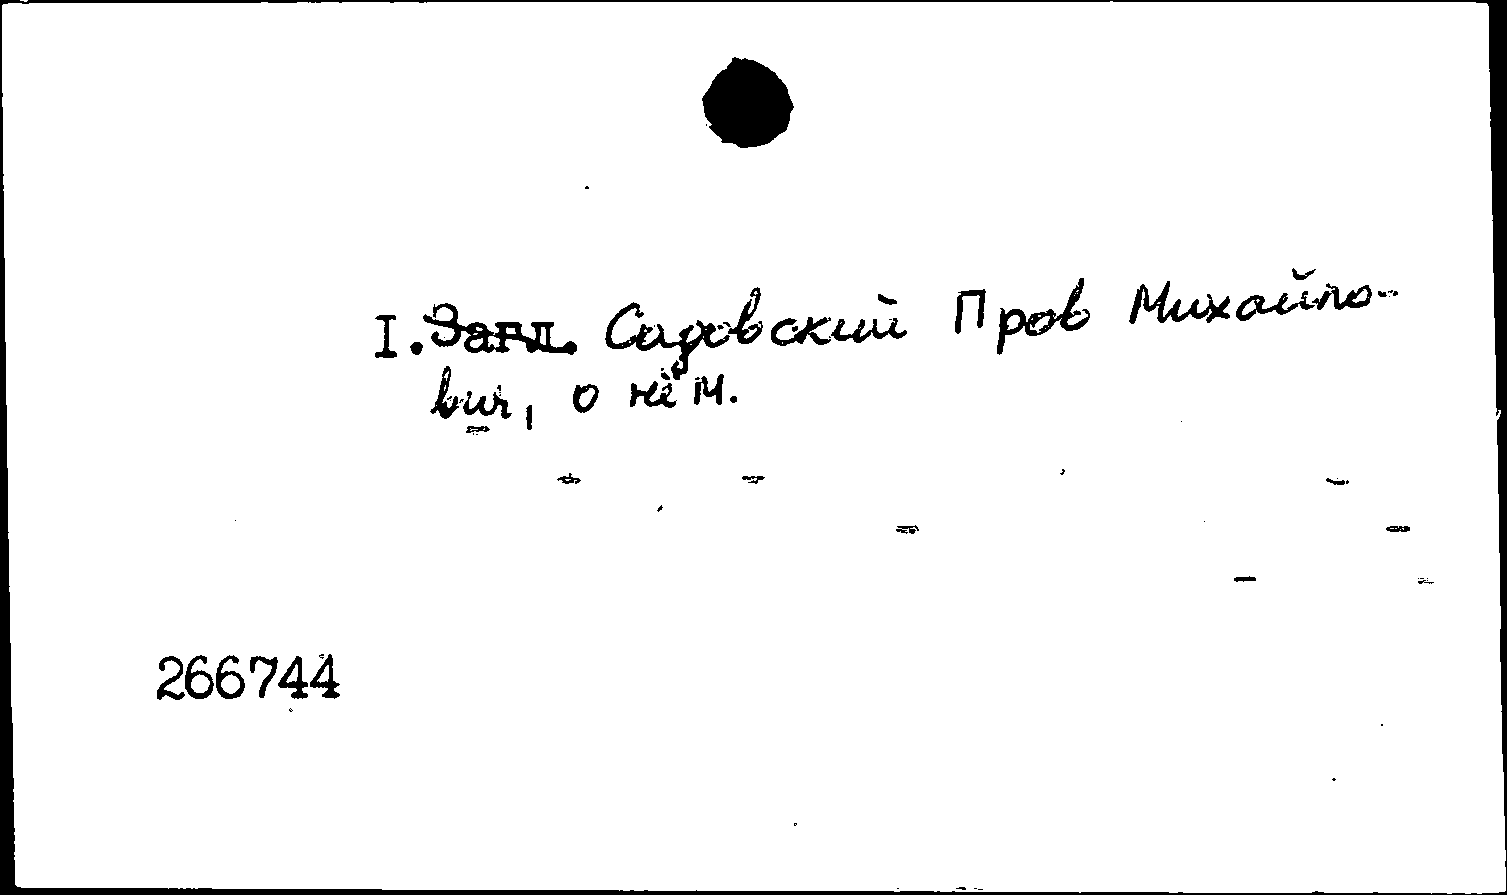 I. Загл. Садовский Пров Михайло-
вич, о нём.
266744